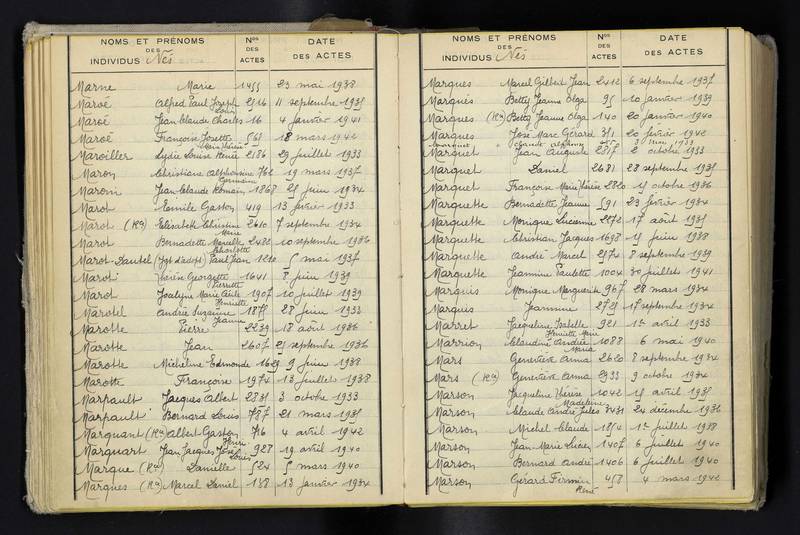 NOMS ET PRÉNOMS DES INDIVIDUS Nés Nos DES ACTES DATE DES ACTES
Marne Marie 1455 23 mai 1938
Maroé Alfred Paul Joseph Louis 2516 11 septembre 1935
Maroé Jean Claude Charles 16 4 janvier 1941
Maroé Françoise Josette Marie Thérèse 561 18 mars 1942
Maroiller Lydie Louise Renée 2186 29 juillet 1933
Maron Christiane Alphonsine 762 19 mars 1937
Maroni Jean Claude Romain Germain 1268 25 juin 1934
Marot Emile Gaston 419 13 février 1933
Marot (Rn) Elisabeth Christine 2610 7 septembre 1934
Marot Bernadette Marcelle Marie 2482 10 septembre 1936
Marot-Dautel (Jgt d'adopt) Paul Jean Charlotte 1210 5 mai 1937
Marot Thérèse Georgette 1641 8 juin 1939
Marot Jocelyne Marie Cécile Pierrette 1907 10 juillet 1939
Marotel Andrée Suzanne Henriette 1875 28 juin 1933
Marotte Pierre Jeanne 2239 18 août 1936
Marotte Jean 2607 25 septembre 1936
Marotte Micheline Edmonde 1629 9 juin 1938
Marotte Françoise 1974 13 juillet 1938
Marpault Jacques Albert 2831 3 octobre 1933
Marpault Bernard Louis 787 21 mars 1935
Marquant (Rn) Albert Gaston 716 4 avril 1942
Marquart Jean Jacques José Henri Louis 928 19 avril 1940
Marque (Rn) Danielle 524 5 mars 1940
Marques (Rn) Marcel Daniel 138 13 janvier 1934
NOMS ET PRÉNOMS DES INDIVIDUS Nés Nos DES ACTES DATE DES ACTES
Marques Marcel Gilbert Jean 2412 6 septembre 1937
Marques Betty Jeanne Olga 95 10 janvier 1939
Marques (Rn) Betty Jeanne Olga 140 20 janvier 1940
Marques José Marc Gérard 351 20 février 1942
Marquet Claude 3 1933
Marquet Jean Auguste 2857 2 octobre 1933
Marquet Daniel 2681 28 septembre 1935
Marquet Françoise Marie Thérèse 2820 15 octobre 1936
Marquette Bernadette Jeanne 591 23 février 1934
Marquette Monique Lucienne 2272 17 août 1935
Marquette Christian Jacques 1698 15 juin 1938
Marquette André Marcel 2574 8 septembre 1939
Marquette Jeannine Paulette 1004 30 juillet 1941
Marquis Monique Marguerite 967 28 mars 1934
Marquis Jeannine 2729 17 septembre 1934
Marret Jacqueline Isabelle 921 1er avril 1933
Marrion Claudine Andrée Henriette Marie 1088 6 mai 1940
Mars Geneviève Anna Maria 2620 8 septembre 1934
Mars (Rn) Geneviève Anna 2933 9 octobre 1934
Marson Jacqueline Thérèse 1042 15 avril 1935
Marson Claude André Jules Madeleine 3431 24 décembre 1936
Marson Michel Claude 1854 1er juillet 1938
Marson Jean Marie Lucien 1407 6 juillet 1940
Marson Bernard André 1406 6 juillet 1940
Marson Gérard Firmin René 458 4 mars 1942